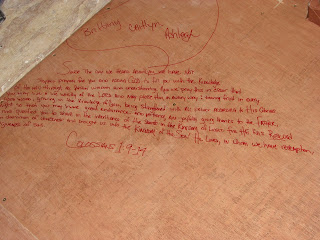 Brittany Caitlyn
Ashleigh
Since the day we heard about you, we have not
stopped praying for you and asking God to fill you with the knowledge
of His will through all spiritual wisdom and understanding. And we pray this in order that
you may live a life worthy of the Lord and may please Him in every way: bearing fruit in every
good work, growing in the knowledge of God, being strengthened with all power according to His Glorious
might so that you may have great endurance and patience, and joyfully giving thanks to the Father,
who has qualified you to share in the inheritance of the saints in the Kingdom of Light. For He has Rescued
us from the dominion of darkness and brought us into the Kingdom of the Son He Loves, in whom we have redemption,
forgiveness of sins.
Colossians 1:9-14